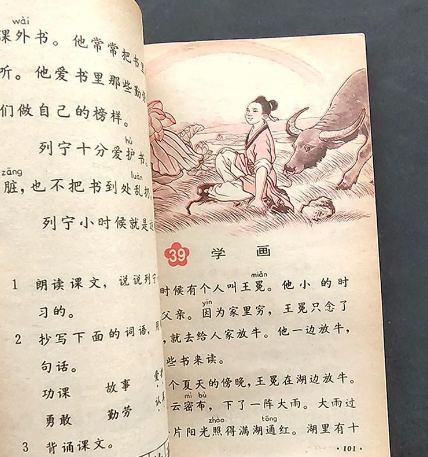 wài
课外书。他常常把书里
听。他爱书里那些勤
们做自己的榜样。
hù
列宁十分爱护书。
zāng luàn
脏，也不把书到处乱扔
列宁小时候就是这
1 朗读课文，说说列宁
习的。
2 抄写下面的词语，用
句话。
功课 故事
勇敢 勤劳
3 背诵课文。
39 学画
miǎn
时候有个人叫王冕。他小的时
yīn
父亲。因为家里穷，王冕只念了
，就去给人家放牛。他一边放牛，
些书来读。
个夏天的傍晚，王冕在湖边放牛。
mì bù
云密布，下了一阵大雨。大雨过
zhào tōng
片阳光照得满湖通红。湖里有十
·101·